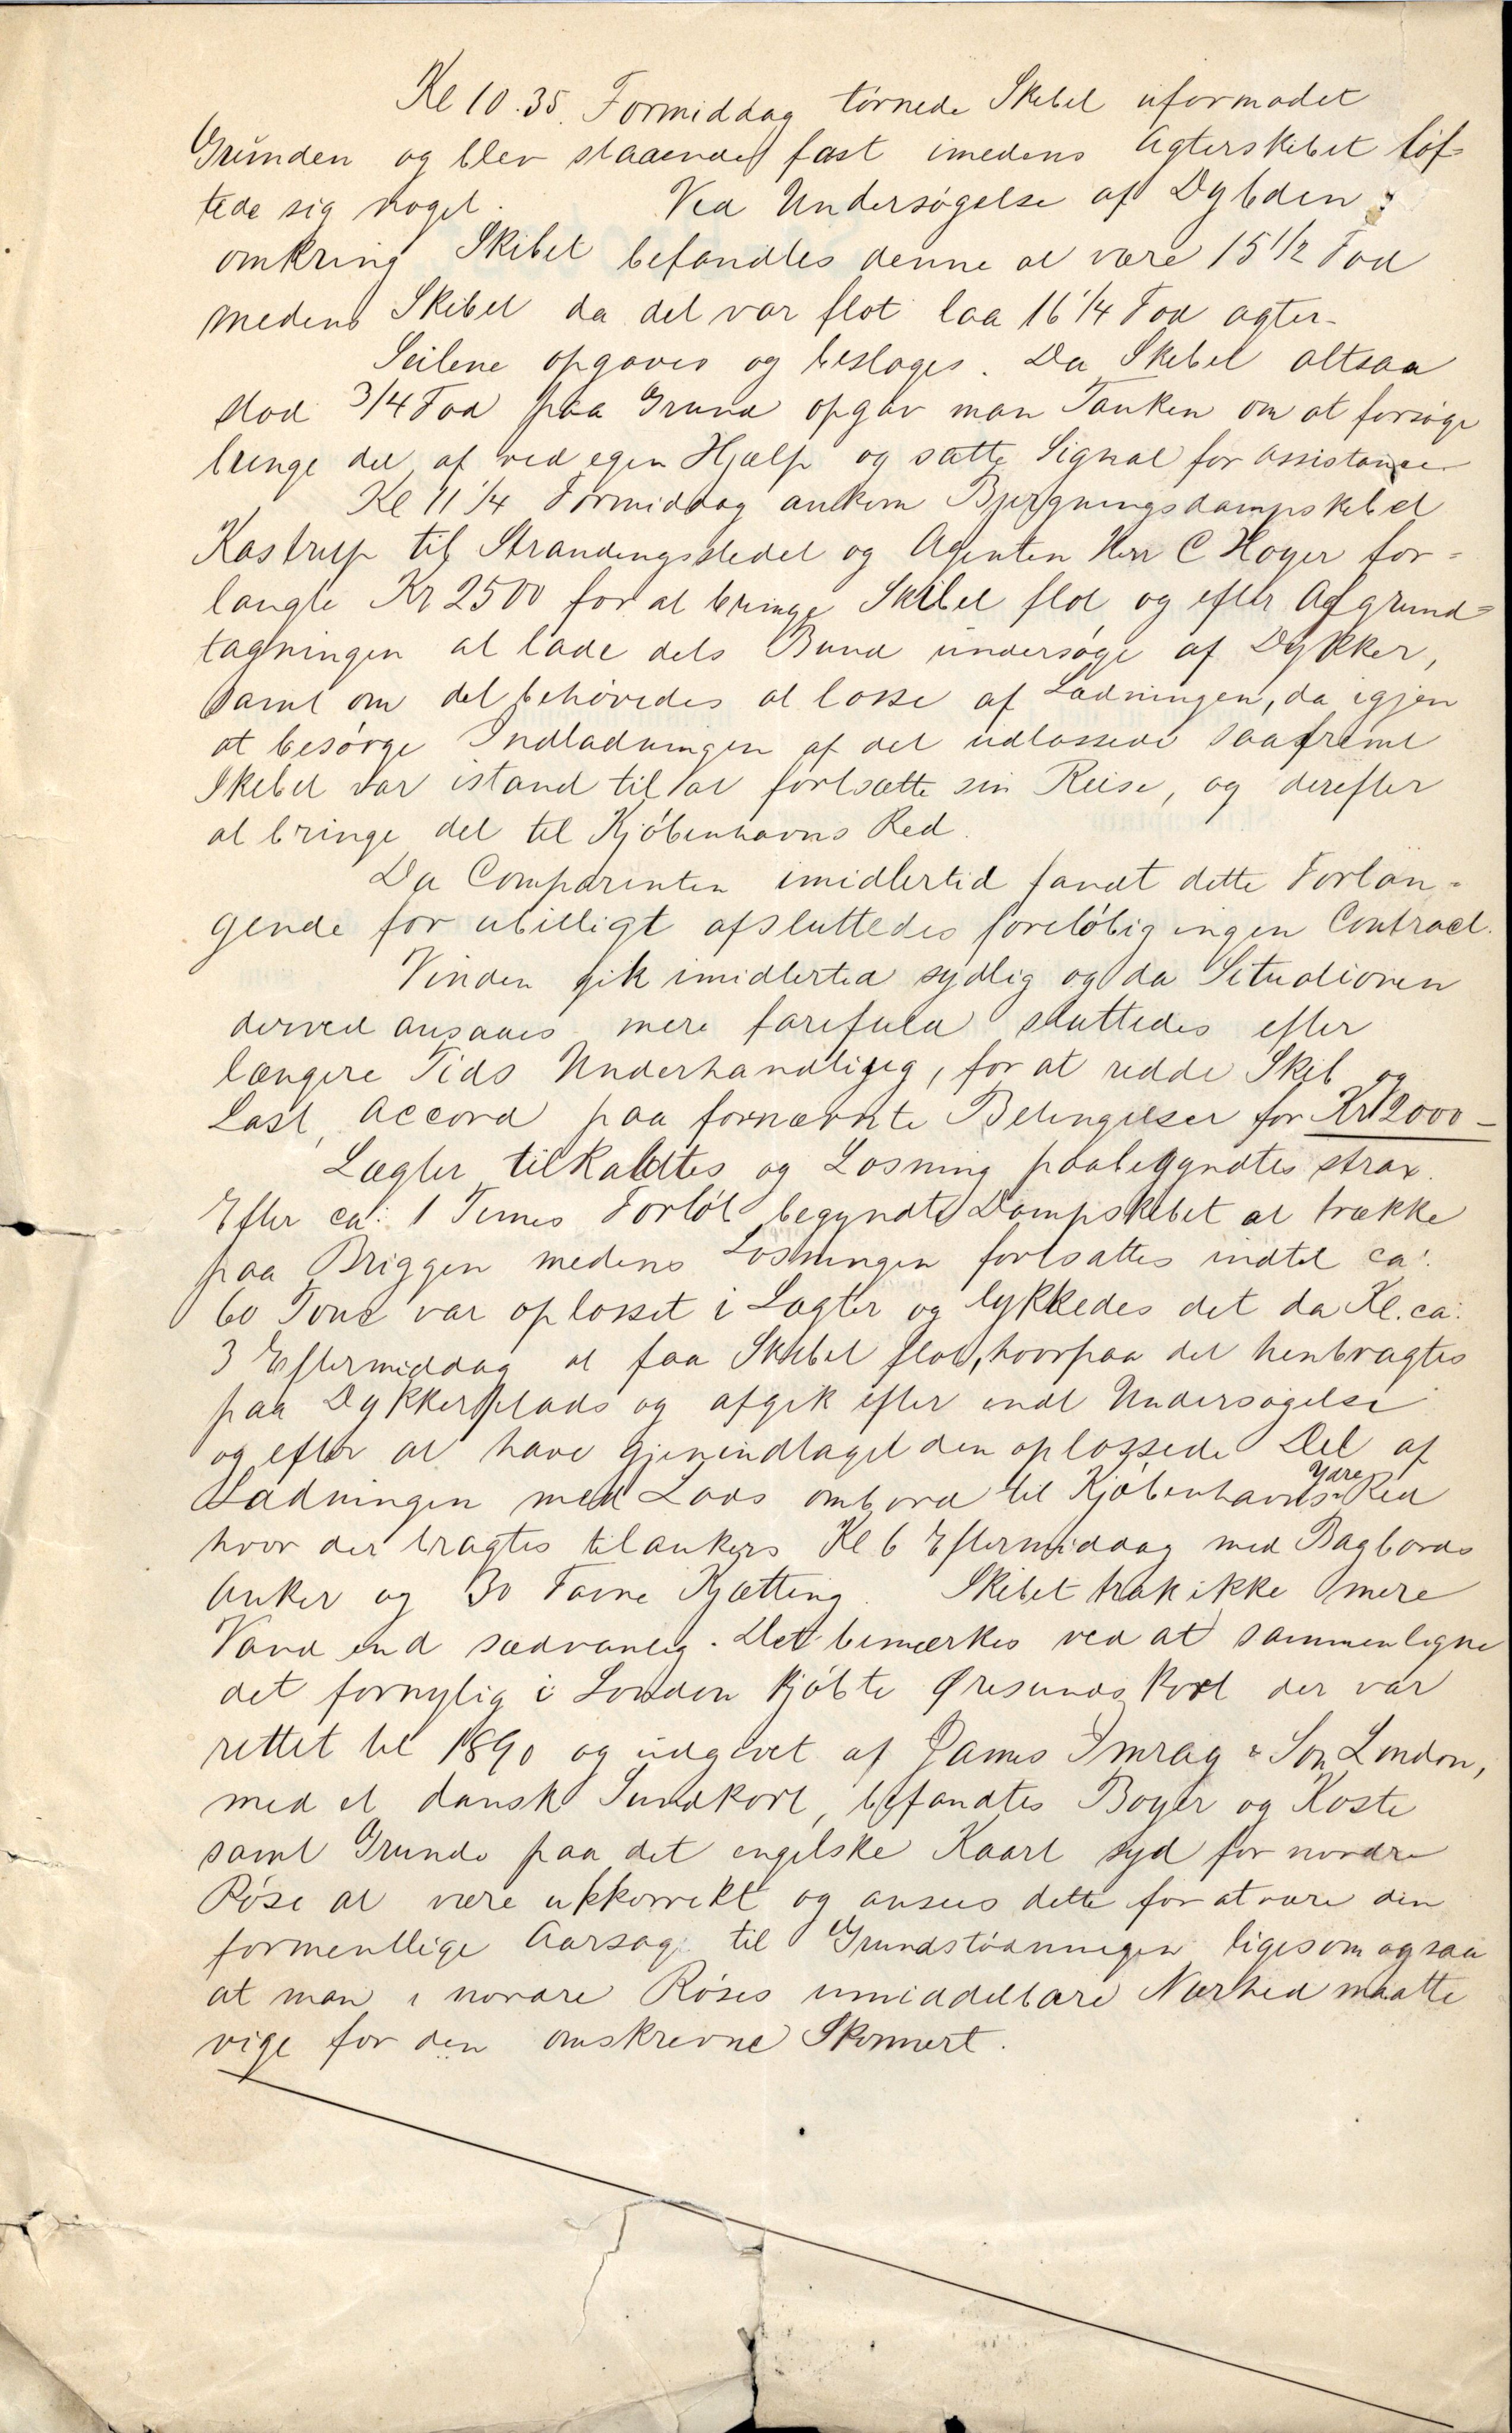 Kl 10.35. Formiddag tørnede Skibet uformodet
Grunden og blev staaende fast imedens Agterskibet løf=
tede sig noget. Ved Undersøgelse af Dybden
omkring Skibet befandtes denne at være 15 1/2 Fod
medens Skibet da det var flot laa 16 1/4 Fod agter.
Seilene opgaves og besloges. Da Skibet altsaa
stod 3/4 Fod paa Grund opgav man Tanken om at forsøge
bringe det af ved egen Hjælp og satte Signal for Assistance
Kl 11 1/4 Formiddag ankom Bjergningsdampskibet
Kastrup til Strandingsstedet og Agenten Herr C Høyer for=
langte Kr 2500 for at bringe Skibet flot og efter Afgrund=
tagningen at lade dets Bund undersøge af Dykker,
samt om det behøvedes at losse af Ladningen, da igjen
at besørge Indladningen af det udlossede saafremt
Skibet var istand til at fortsætte sin Reise, og derefter
at bringe det til Kjøbenhavns Red.
Da Comparenten imidlertid fandt dette Forlan=
gende for ubilligt afsluttedes foreløbig ingen Contract.
Vinden gik imidlertid sydlig og da Situationen
derved ansaaes mere farefuld sluttedes efter
længere Tids Underhandligig, for at redde Skib og
Last, Accord paa fornævnte Betingelser for Kr 12000 -
Lægter tilkaldtes og Losning paabegyndtes strax.
Efter ca: 1 Times Forløb begyndte Dampskibet at trække
paa Briggen medens Losningen fortsattes indtil ca:
60 Tons var oplosset i Lægter og lykkedes det da Kl. ca:
3 Eftermiddag at faa Skibet flot, hvorpaa det henbragtes
paa Dykkerplads og afgik efter endt Undersøgelse
og efter at have gjenindtaget den oplossede Del af
Ladningen med Lods ombord til Kjøbenhavns Ydre Red
hvor der bragtes tilankers Kl 6 Eftermiddag med Bagbords
Anker og 30 Favne Kjætting. Skibet trak ikke mere
Vand end sædvanlig. Det bemærkes ved at sammenligne
det fornylig i London kjøbte Øresunds Kort der var
rettet til 1890 og udgivet af James Imray & Son London,
med et dansk Sundkort, befandtes Bøyer og Koste
samt Grunde paa det engelske Kaart syd for nordre
Røse at være ukkorrekt og ansees dette for at være den
formentlige Aarsag til Grundstødningen ligesom ogsaa
at man i nordre Røses umiddelbare Nærhed maatte
vige for den omskrevne Skonnert.